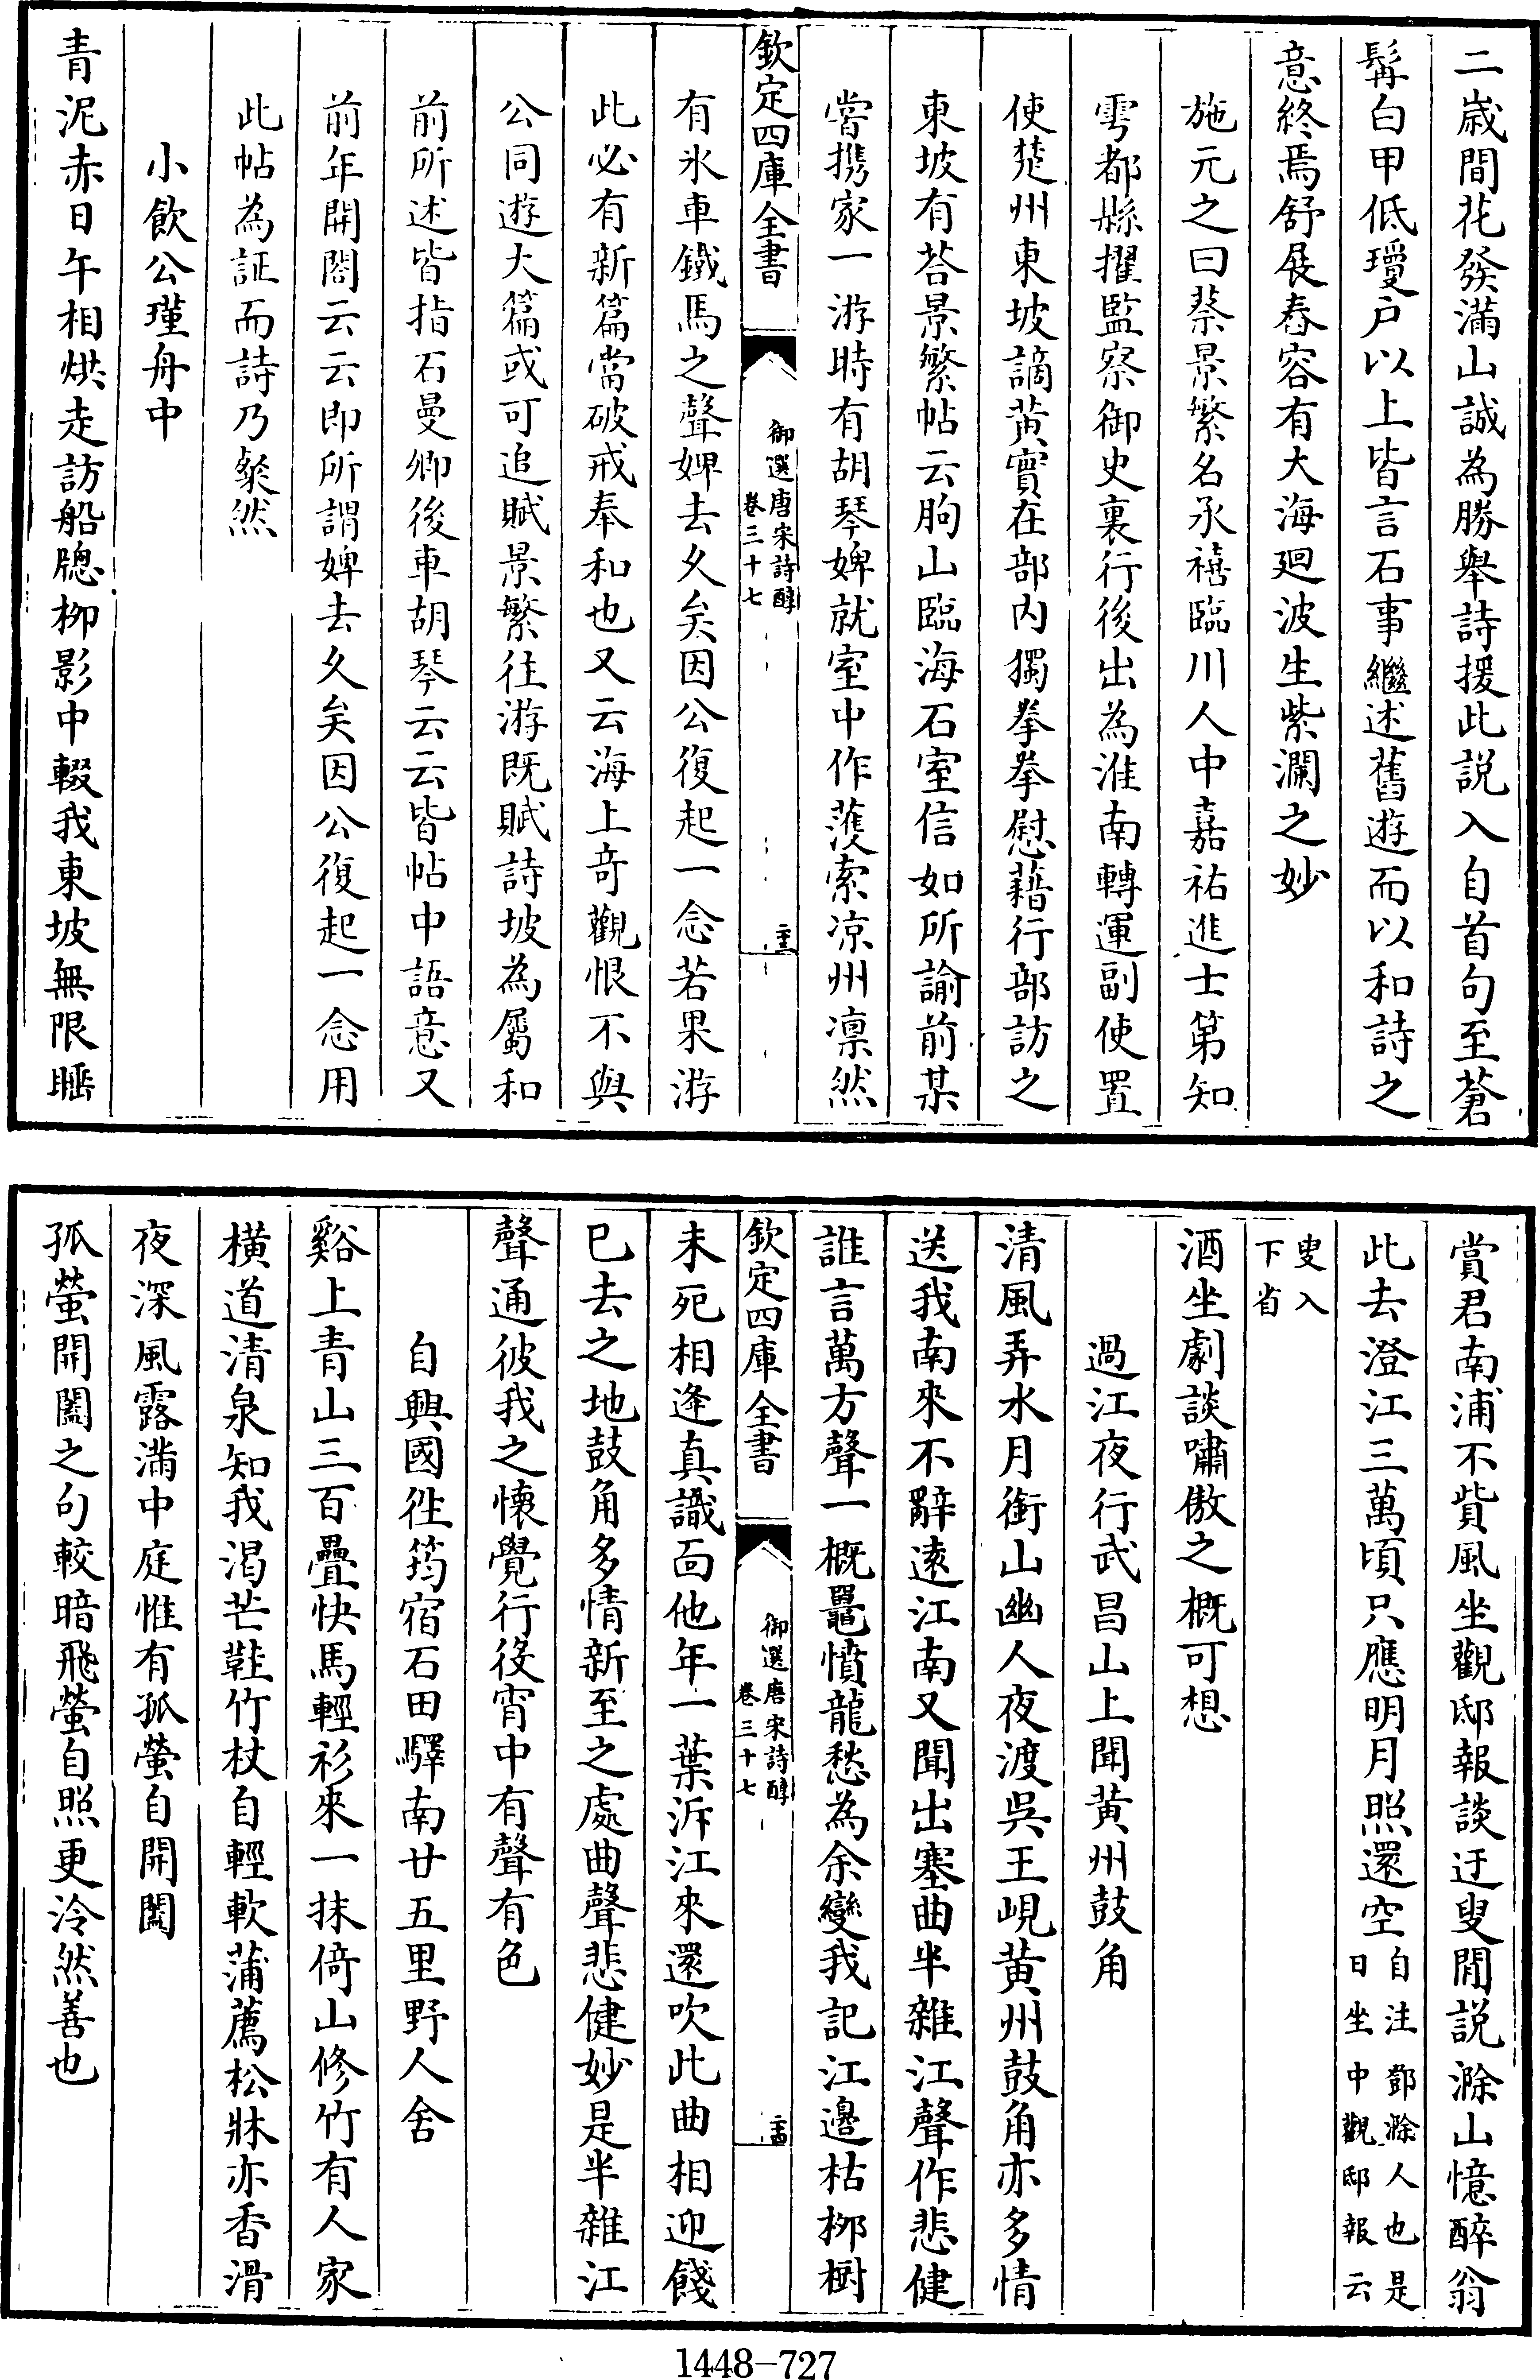 二歳間花發滿山誠為勝舉詩援此説入自首句至蒼
髯白甲低瓊户以上皆言石事繼述舊遊而以和詩之
意終焉舒展舂容有大海廻波生紫瀾之妙
施元之曰蔡景繁名承禧臨川人中嘉祐進士第知
雩都縣擢監察御史裏行後出為淮南轉運副使置
使楚州東坡謫黄實在部内獨拳拳慰藉行部訪之
東坡有荅景繁帖云朐山臨海石室信如所諭前某
嘗携家一游時有胡琴婢就室中作濩索凉州凛然
欽定四庫全書
御選唐宋詩醇
卷三十七
有氷車鐵馬之聲婢去久矣因公復起一念若果游
此必有新篇當破戒奉和也又云海上竒觀恨不與
公同遊大篇或可追賦景繁往游既賦詩坡為屬和
前所述皆指石曼卿後車胡琴云云皆帖中語意又
前年開閤云云即所謂婢去久矣因公復起一念用
此帖為証而詩乃粲然
小飲公瑾舟中
青泥赤日午相烘走訪船牕栁影中輟我東坡無限睡
賞君南浦不貲風坐觀邸報談迂叟閒説滁山憶醉翁
此去澄江三萬頃只應明月照還空自注鄧滁人也是
日坐中觀邸報云
叟入
下省
酒坐劇談嘯傲之概可想
過江夜行武昌山上聞黄州鼓角
清風弄水月銜山幽人夜渡吳王峴黄州鼓角亦多情
送我南來不辭遠江南又聞出塞曲半雜江聲作悲健
誰言萬方聲一概鼉憤龍愁為余變我記江邊枯栁樹
欽定四庫全書
御選唐宋詩醇
卷三十七
未死相逢真識面他年一葉泝江來還吹此曲相迎餞
已去之地鼓角多情新至之處曲聲悲健妙是半雜江
聲通彼我之懷覺行役宵中有聲有色
自興國往筠宿石田驛南廿五里野人舍
谿上青山三百疊快馬輕衫來一抹倚山修竹有人家
横道清泉知我渴芒鞋竹杖自輕軟蒲薦松牀亦香滑
夜深風露滿中庭惟有孤螢自開闔
孤螢開闔之句較暗飛螢自照更泠然善也
1448-727